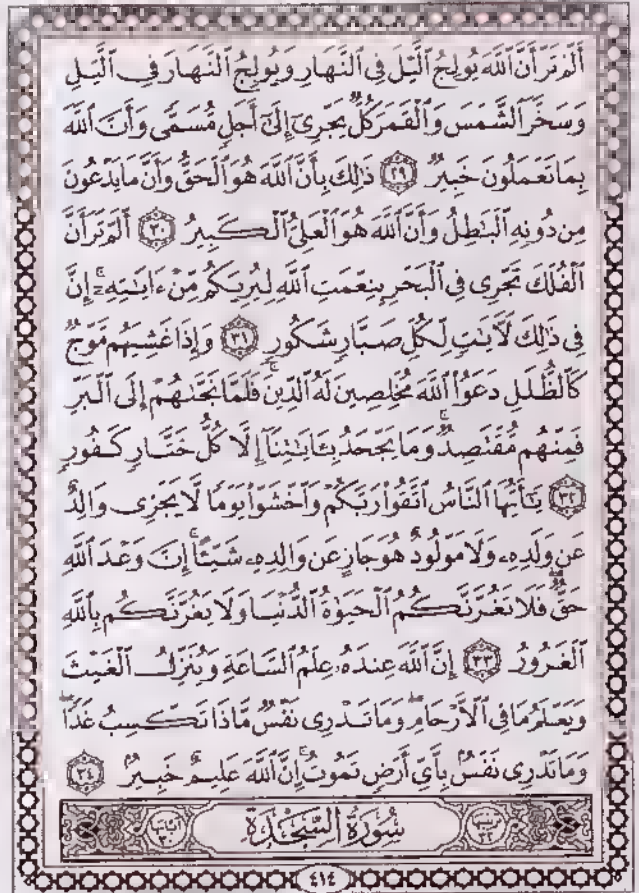 أَلَمْ تَرَ أَنَّ ٱللَّهَ يُولِجُ ٱلَّيْلَ فِى ٱلنَّهَارِ وَيُولِجُ ٱلنَّهَارَ فِى ٱلَّيْلِ
وَسَخَّرَ ٱلشَّمْسَ وَٱلْقَمَرَ كُلٌّ يَجْرِىٓ إِلَىٰٓ أَجَلٍ مُّسَمًّى وَأَنَّ ٱللَّهَ
بِمَا تَعْمَلُونَ خَبِيرٌ ٢٩ ذَٰلِكَ بِأَنَّ ٱللَّهَ هُوَ ٱلْحَقُّ وَأَنَّ مَا يَدْعُونَ
مِن دُونِهِ ٱلْبَٰطِلُ وَأَنَّ ٱللَّهَ هُوَ ٱلْعَلِىُّ ٱلْكَبِيرُ ٣٠ أَلَمْ تَرَ أَنَّ
ٱلْفُلْكَ تَجْرِى فِى ٱلْبَحْرِ بِنِعْمَتِ ٱللَّهِ لِيُرِيَكُم مِّنْ ءَايَٰتِهِۦٓ ۚ إِنَّ
فِى ذَٰلِكَ لَءَايَٰتٍ لِّكُلِّ صَبَّارٍ شَكُورٍ ٣١ وَإِذَا غَشِيَهُم مَّوْجٌ
كَٱلظُّلَلِ دَعَوُا۟ ٱللَّهَ مُخْلِصِينَ لَهُ ٱلدِّينَ فَلَمَّا نَجَّىٰهُمْ إِلَى ٱلْبَرِّ
فَمِنْهُم مُّقْتَصِدٌ ۚ وَمَا يَجْحَدُ بِـَٔايَٰتِنَآ إِلَّا كُلُّ خَتَّارٍ كَفُورٍ
٣٢ يَٰٓأَيُّهَا ٱلنَّاسُ ٱتَّقُوا۟ رَبَّكُمْ وَٱخْشَوْا۟ يَوْمًا لَّا يَجْزِى وَالِدٌ
عَن وَلَدِهِۦ وَلَا مَوْلُودٌ هُوَ جَازٍ عَن وَالِدِهِۦ شَيْـًٔا ۚ إِنَّ وَعْدَ ٱللَّهِ
حَقٌّ ۖ فَلَا تَغُرَّنَّكُمُ ٱلْحَيَوٰةُ ٱلدُّنْيَا وَلَا يَغُرَّنَّكُم بِٱللَّهِ
ٱلْغَرُورُ ٣٣ إِنَّ ٱللَّهَ عِندَهُۥ عِلْمُ ٱلسَّاعَةِ وَيُنَزِّلُ ٱلْغَيْثَ
وَيَعْلَمُ مَا فِى ٱلْأَرْحَامِ ۖ وَمَا تَدْرِى نَفْسٌ مَّاذَا تَكْسِبُ غَدًا ۖ
وَمَا تَدْرِى نَفْسٌۢ بِأَىِّ أَرْضٍ تَمُوتُ ۚ إِنَّ ٱللَّهَ عَلِيمٌ خَبِيرٌۢ ٣٤
ترتيبها ٣٢ سُورَةُ السَّجْدَةِ آياتها ٣٠
٤١٤